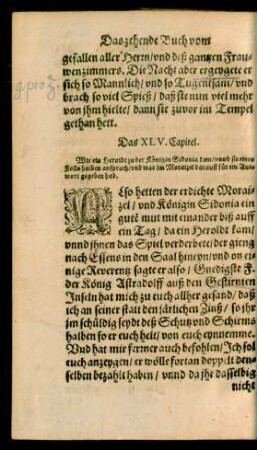 Das zehende Buch vom
gefallen aller Herrn/vnd deß gantzen Frau-
wenzimmers. Die Nacht aber ergeygete er
sich so Mannlich/vnd so Tugentsam/vnd
brach so viel Spieß/daß sie nun viel mehr
von jhm hielte/dann sie zuvor im Tempel
gethan hett.
Das XLV. Capitel.
Wie ein Heroldt zu der Königin Sidonia kam/vnnd sie eines
Zolls halben ansprach/vnd was jm Moraizel darauff für ein Ant-
wort gegeben hab.
Also hetten der erdichte Morai-
zel/vnd Königin Sidonia ein
gute mut mit einander biß auff
ein Tag/da ein Heroldt kam/
vnnd jhnen das Spiel verderbete/der gieng
nach Essens in den Saal hineyn/vnd on ei-
nige Reverentz sagte er also/Gnedigste F.
der König Astradolff auß den Gestirnten
Inseln hat mich zu euch allher gesand/daß
ich an seiner statt den järlichen Zinß/so jhr
jm schüldig seydt deß Schutz vnd Schirms
halben so er euch helt/von euch eynneme.
Vnd hat mir ferrner auch befohlen/Ich sol
euch anzeygen/er wölle fortan doppelt den-
selben bezahlt haben/vnnd da jhr dasselbig
nicht